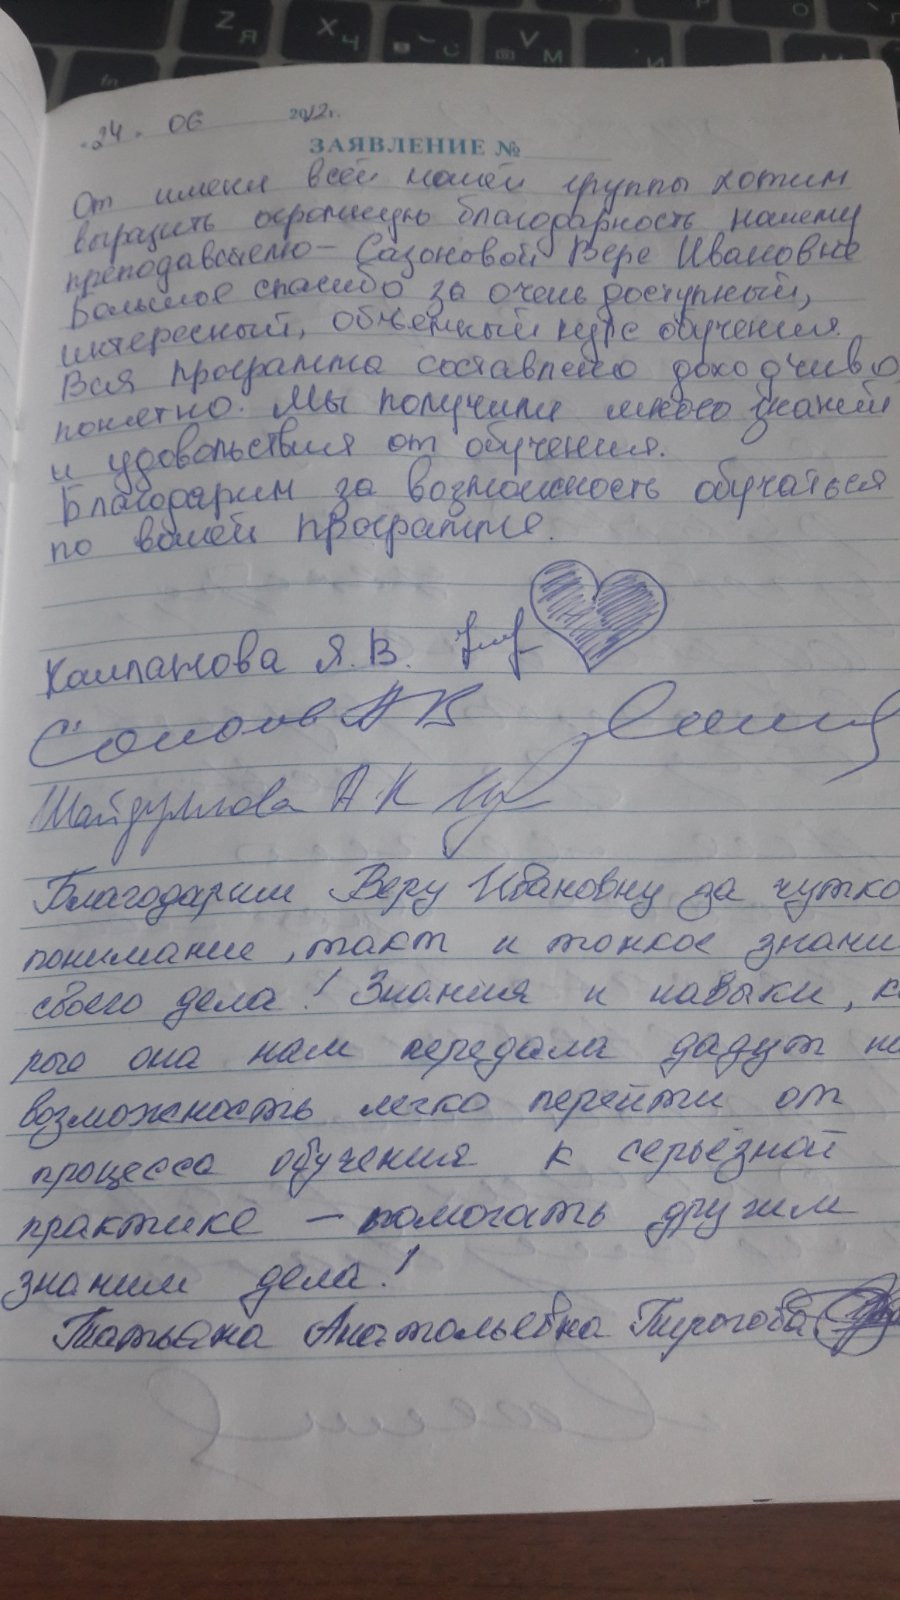 24. 06 2012г.
ЗАЯВЛЕНИЕ №
От имени всей нашей группы хотим
выразить огромную благодарность нашему
преподавателю – Сазоновой Вере Ивановне
Большое спасибо за очень доступный,
интересный, объёмный курс обучения.
Вся программа составлено доходчиво,
понятно. Мы получили много знаний
и удовольствия от обучения.
Благодарим за возможность обучаться
по вашей программе.
Я. В.
А В
Шайдуллова А К
Благодарим Веру Ивановну за чутко
понимание, такт и тонкое знани
своего дела! Знания и навыки, к
рого она нам передала дадут н
возможность легко перейти от
процесса обучения к серьёзной
практике – помогать другим
знаним дела!
Татьяна Анатольевна Пирогова